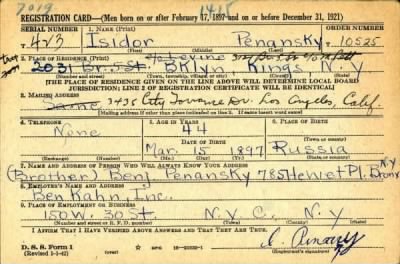 7019 1415
REGISTRATION CARD—(Men born on or after February 17, 1897 and on or before December 31, 1921)
SERIAL NUMBER 1. NAME (Print) ORDER NUMBER
423 Isidor Penansky 10525
(First) (Middle) (Last)
2. PLACE OF RESIDENCE (Print) c/o Levine
2031 St. Bklyn Kings N.Y
(Number and street) (Town, township, village, or city) (County) (State)
[THE PLACE OF RESIDENCE GIVEN ON THE LINE ABOVE WILL DETERMINE LOCAL BOARD
JURISDICTION; LINE 2 OF REGISTRATION CERTIFICATE WILL BE IDENTICAL]
3. MAILING ADDRESS
Same 3435 City Terrace Dr. Los Angeles, Calif.
[Mailing address if other than place indicated on line 2. If same insert word same]
4. TELEPHONE 5. AGE IN YEARS 6. PLACE OF BIRTH
None 44
DATE OF BIRTH (Town or county)
Mar. 15 1897 Russia
(Exchange) (Number) (Mo.) (Day) (Yr.) (State or country)
7. NAME AND ADDRESS OF PERSON WHO WILL ALWAYS KNOW YOUR ADDRESS
(Brother) Benj. Penansky 785 Hewet Pl. Bronx N.Y
8. EMPLOYER'S NAME AND ADDRESS
Ben Kahn, Inc.
9. PLACE OF EMPLOYMENT OR BUSINESS
150 W. 30 St. N.Y.C., N.Y.
(Number and street or R. F. D. number) (Town) (County) (State)
I AFFIRM THAT I HAVE VERIFIED ABOVE ANSWERS AND THAT THEY ARE TRUE.
D. S. S. Form 1
(Revised 1-1-42) (over)
(Registrant's signature)